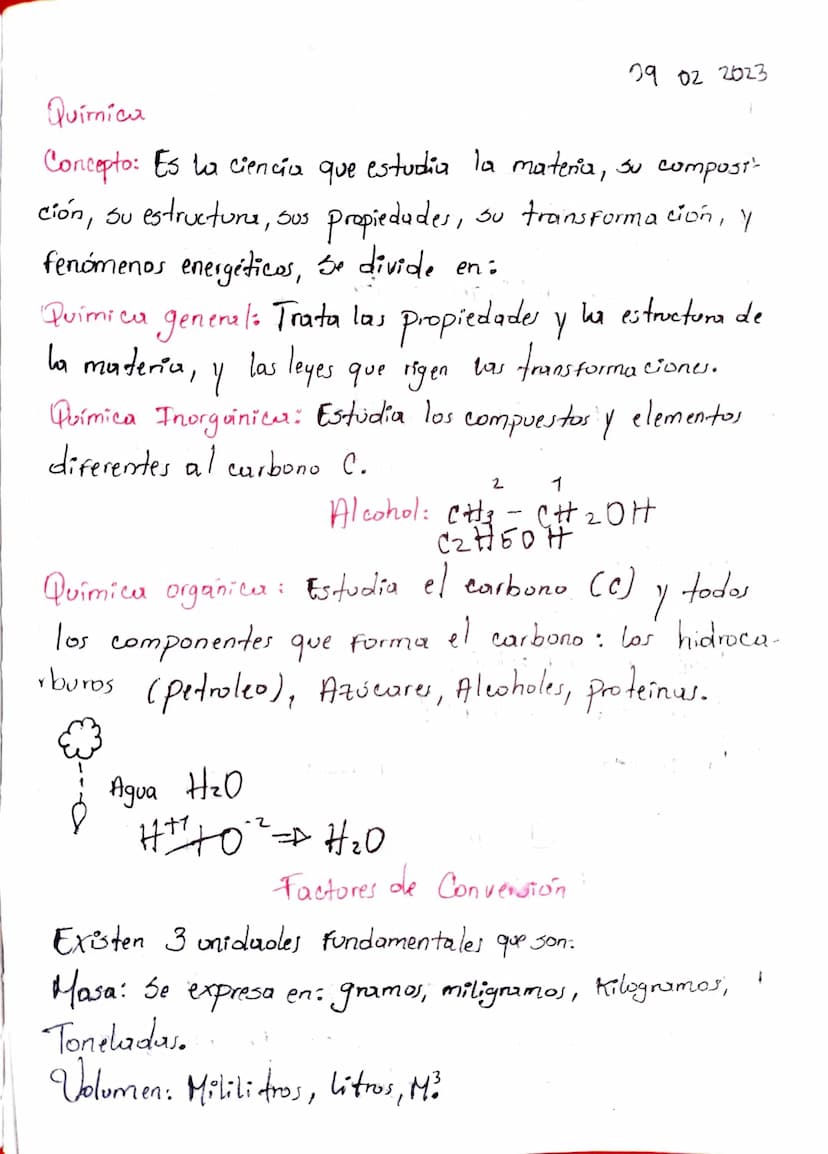 09 02 2023
Química
Concepto: Es la ciencia que estudia la materia, su composi-
ción, su estructura, sus propiedades, su transformación, y
fenómenos energéticos, se divide en:
Química general: Trata las propiedades y la estructura de
la materia, y las leyes que rigen las transformaciones.
Química Inorgánica: Estudia los compuestos y elementos
diferentes al carbono C.
2 1
Alcohol: CH3 - CH2OH
C2H5OH
Química orgánica: Estudia el carbono (C) y todos
los componentes que forma el carbono: los hidroca-
rburos (petroleo), Azúcares, Alcoholes, proteínas.
Agua H2O
H+1+O-2 ⇒ H2O
Factores de Conversión
Existen 3 unidades fundamentales que son:
Masa: Se expresa en: gramos, miligramos, Kilogramos,
Toneladas.
Volumen: Mililitros, litros, M³.